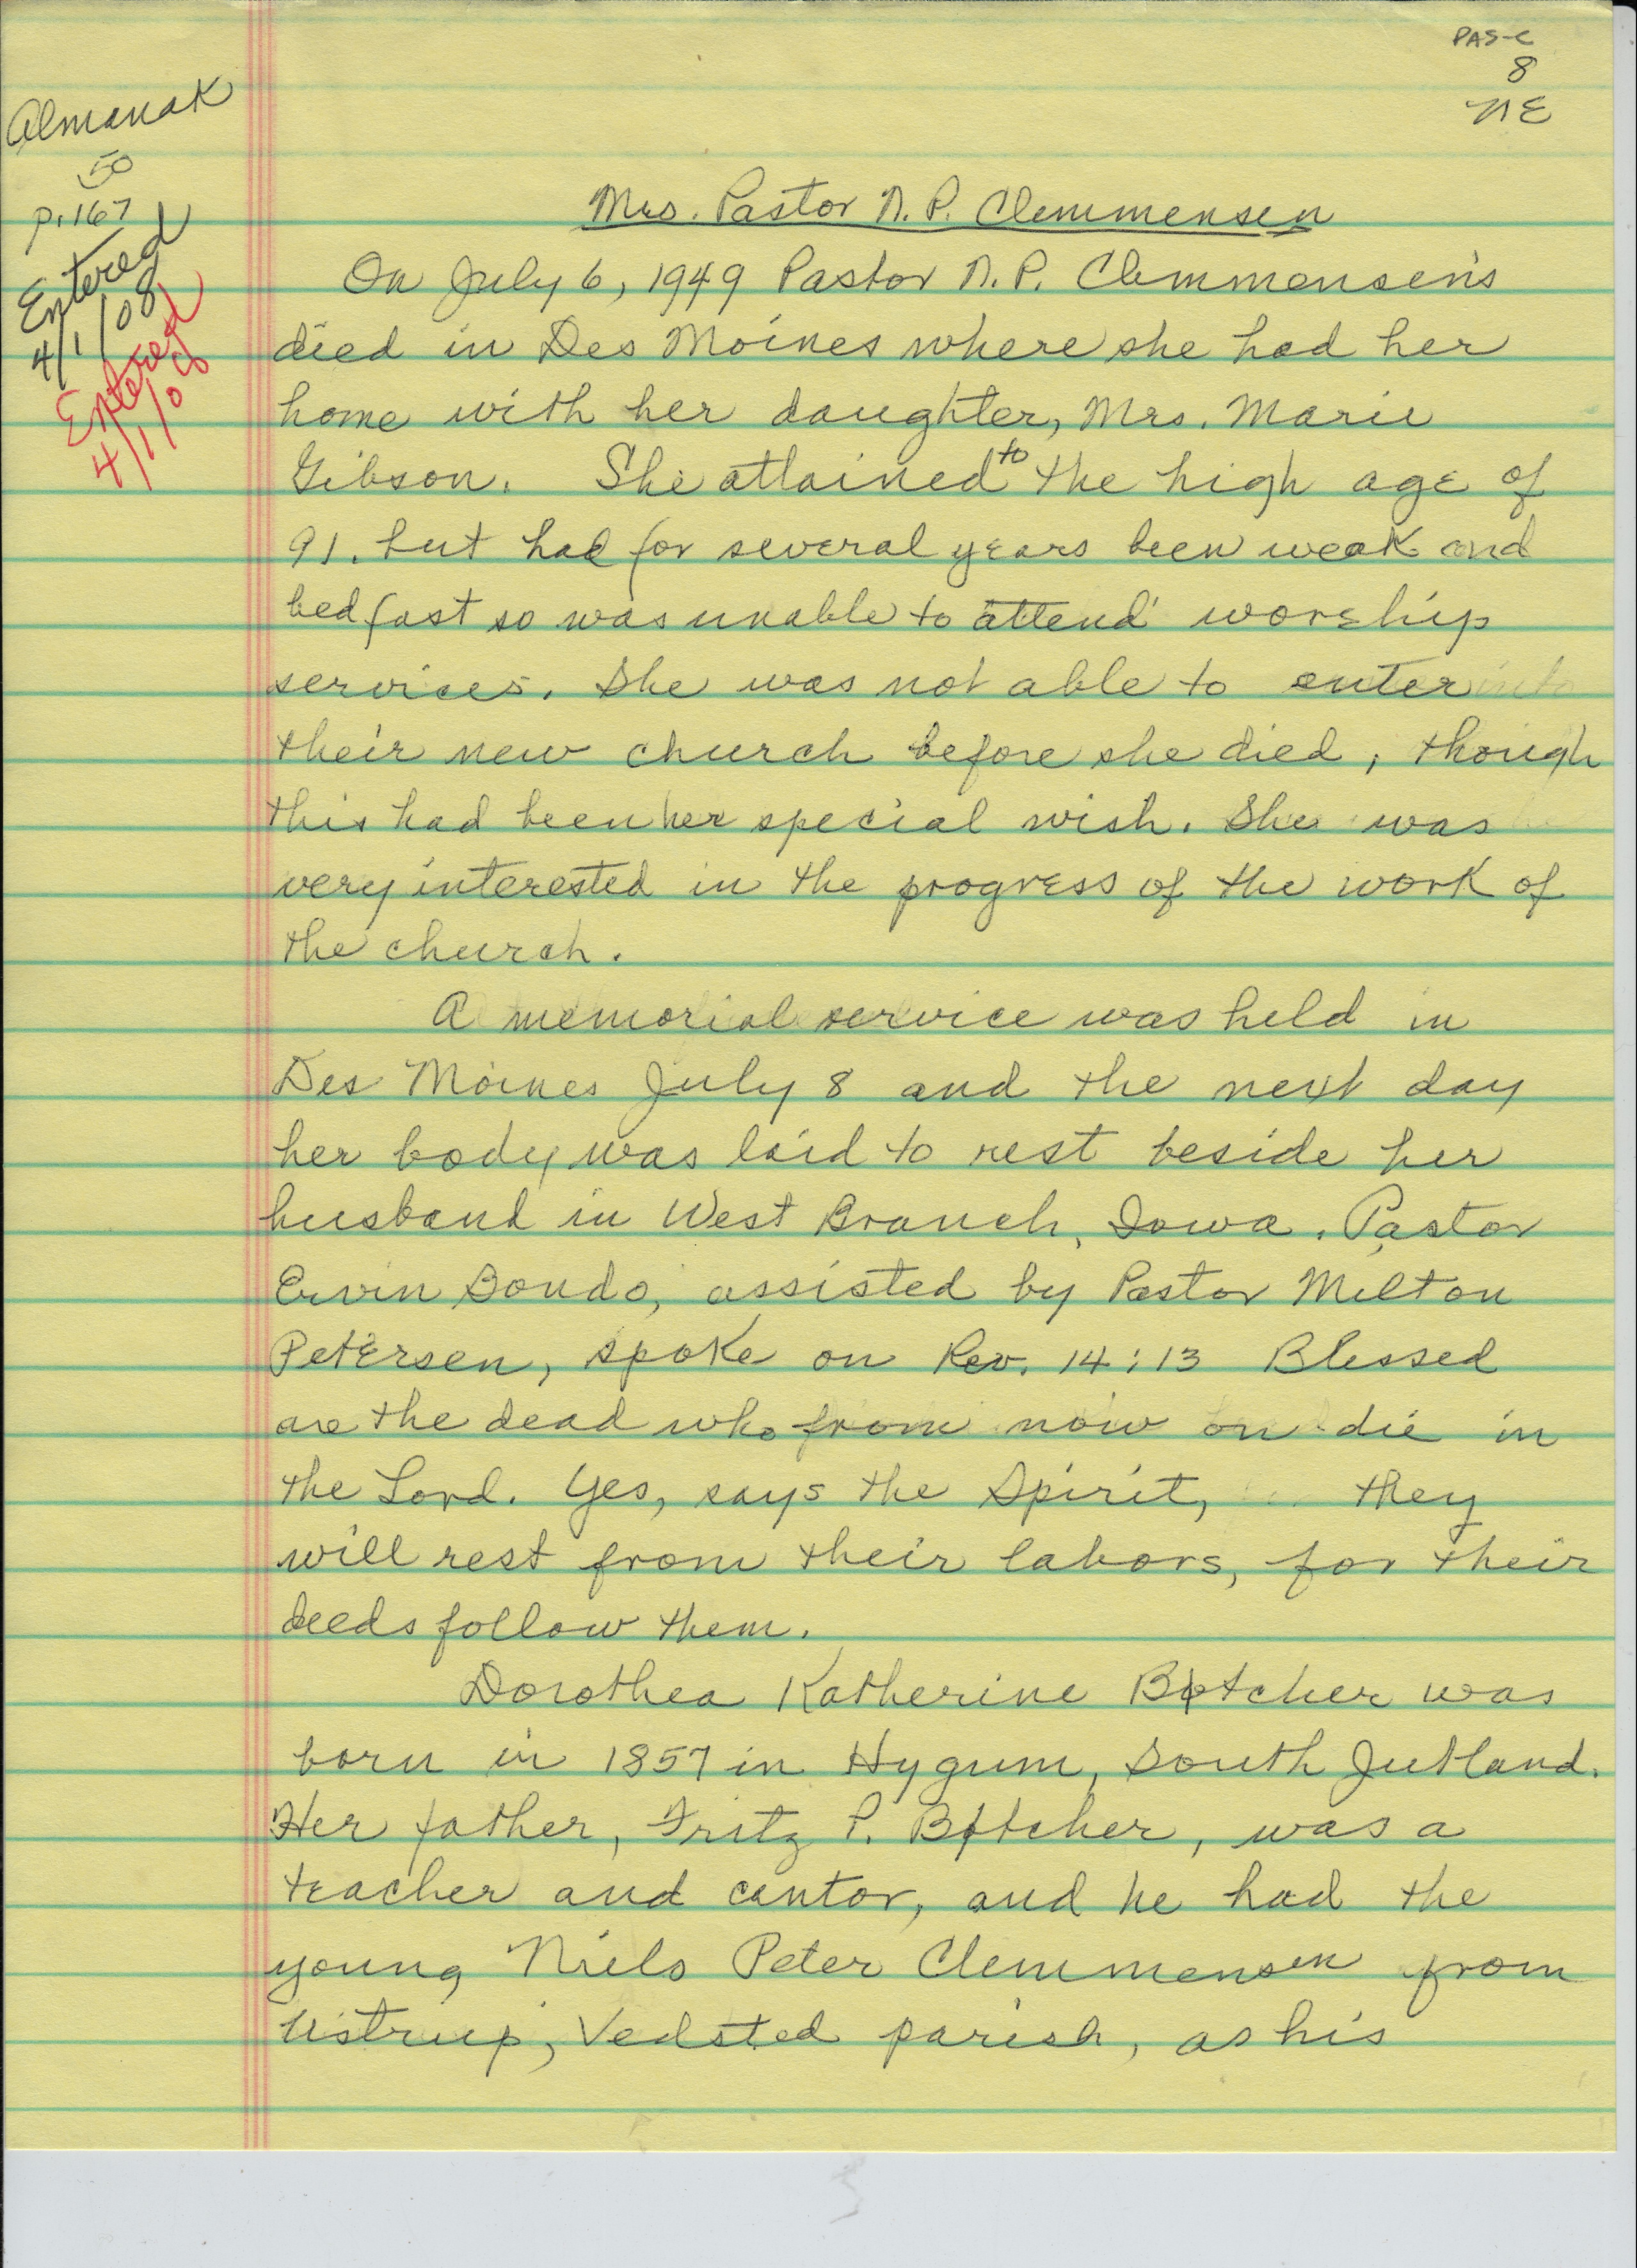 PAS-C
8
NE
Almanak
50
p.167
Entered
4/1/08
Entered
4/1/08
Mrs. Pastor N. P. Clemmensen
On July 6, 1949 Pastor N. P. Clemmensen's
died in Des Moines where she had her
home with her daughter, Mrs. Marie
Gibson. She attained to the high age of
91. but had for several years been weak and
bedfast so was unable to attend worship
services. She was not able to enter into
their new church before she died, though
this had been her special wish. She was
very interested in the progress of the work of
the church.
A memorial service was held in
Des Moines July 8 and the next day
her body was laid to rest beside her
husband in West Branch, Iowa. Pastor
Ervin Bondo, assisted by Pastor Milton
Petersen, spoke on Rev. 14:13 Blessed
are the dead who from now on die in
the Lord. Yes, says the Spirit, they
will rest from their labors, for their
deeds follow them.
Dorothea Katherine Bøtcher was
born in 1857 in Hygum, South Jutland.
Her father, Fritz P. Bøtcher, was a
teacher and cantor, and he had the
young Niels Peter Clemmensen from
Ustrup, Vedsted parish, as his